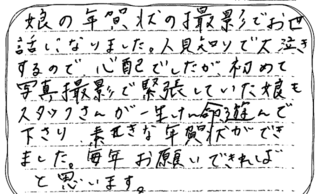 娘の年賀状の撮影でお世
話になりました。人見知りで大泣き
するので心配でしたが、初めて
写真撮影で緊張していた娘も
スタッフさんが一生けん命遊んで
下さり、素てきな年賀状ができ
ました。毎年お願いできれば
と思います。